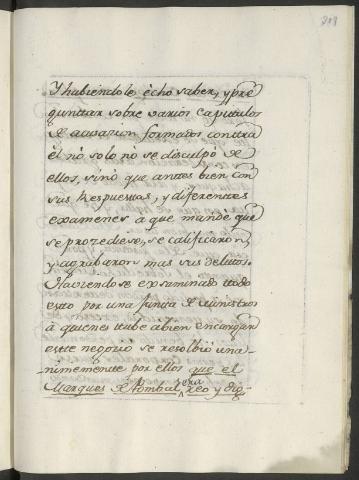 Y hubiendole ècho saber, y pre
guntar sobre varios Capitulos
de acusacion formados conttra
èl nò solo nò se disculpò de
ellos, sinò que anttes bien con
sus Respuestas, y diferenttes
examenes à que mandè que
se prozediese, se calificàron,
y agrabaron mas sus delittos.
Haviendose examinado ttodo
estto por una Juntta de Ministros
à quienes ttube àbien encargar
estte negociò se resolbiò una-
nimementte por ellos que el
Marques de Pombal era reo y dig-